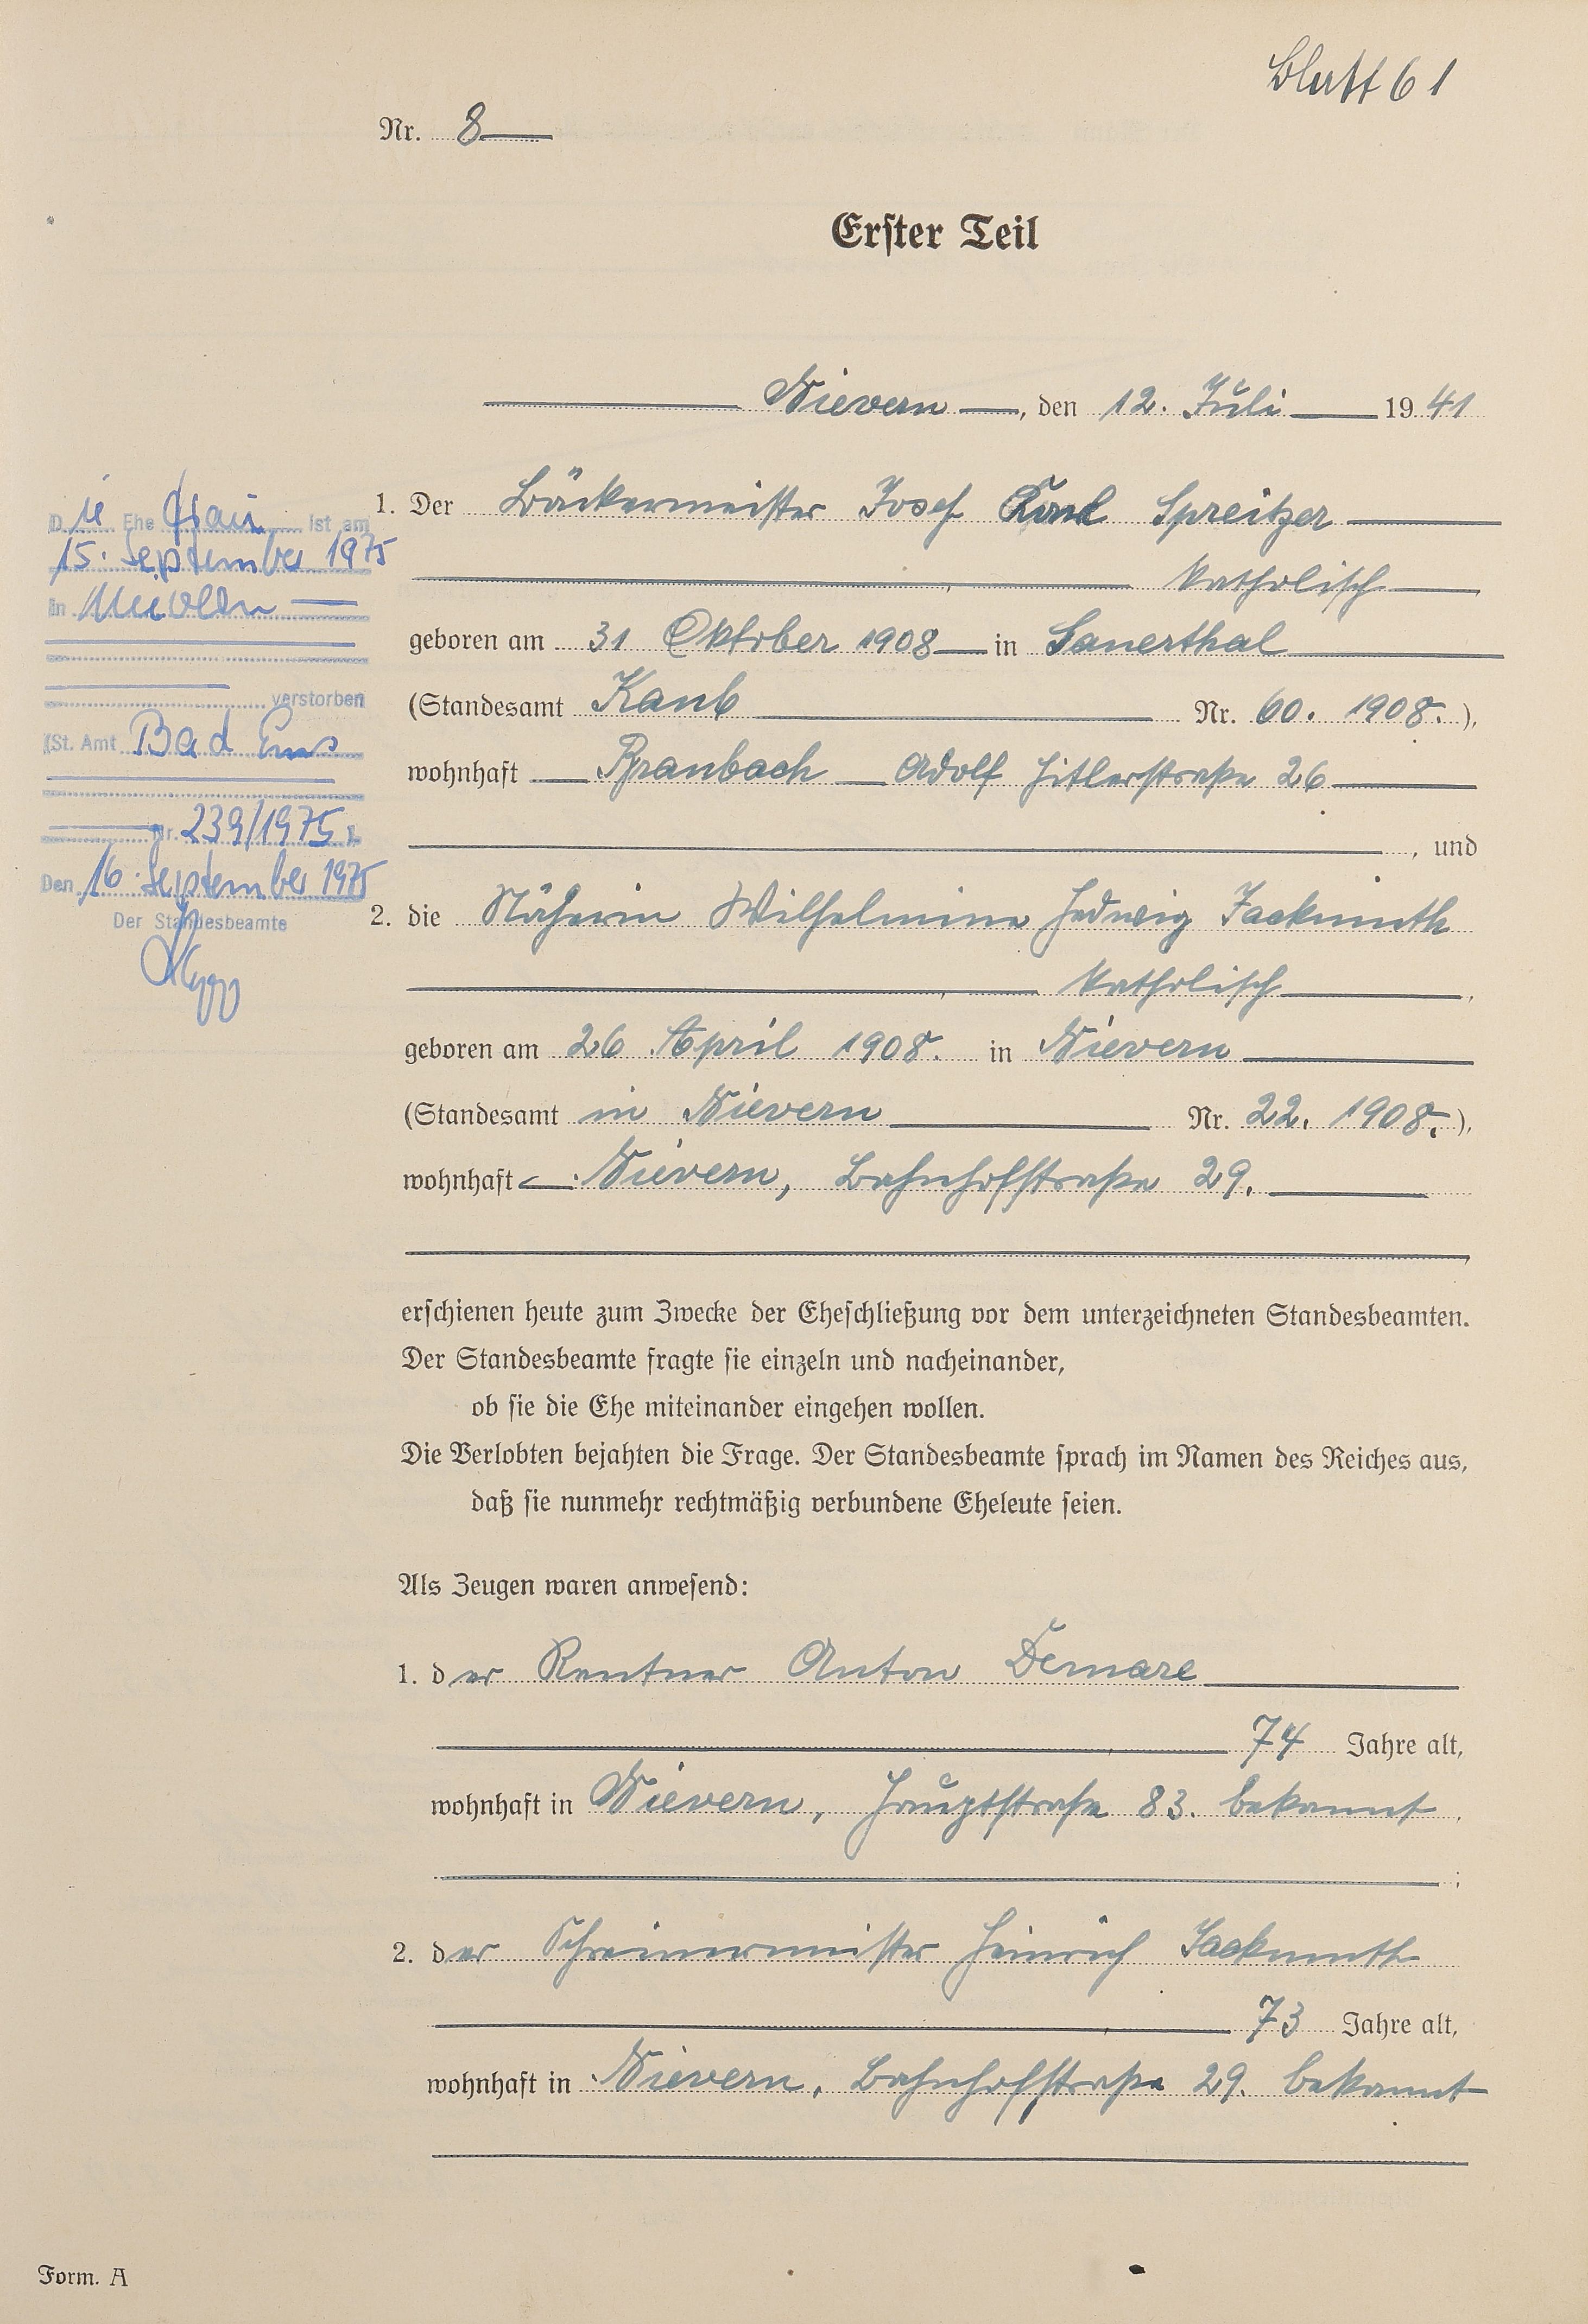 Blatt 61
Nr. 8
Erster Teil
Nievern, den 12. Juli 1941
1. Der Bäckermeister Josef Karl Spreitzer
katholisch
geboren am 31 Oktober 1908 in Sauerthal
(Standesamt Kaub Nr. 60. 1908.),
wohnhaft Branbach Adolf Hitlerstraße 26
, und
2. die Näherin Wilhelmine Hedwig Jackmuth
katholisch,
geboren am 26 April 1908. in Nievern
(Standesamt in Nievern Nr. 22. 1908.),
wohnhaft Nievern, Bahnhofstraße 29.
erschienen heute zum Zwecke der Eheschließung vor dem unterzeichneten Standesbeamten.
Der Standesbeamte fragte sie einzeln und nacheinander,
ob sie die Ehe miteinander eingehen wollen.
Die Verlobten bejahten die Frage. Der Standesbeamte sprach im Namen des Reiches aus,
daß sie nunmehr rechtmäßig verbundene Eheleute seien.
Als Zeugen waren anwesend:
1. der Rentner Anton Demare
74 Jahre alt,
wohnhaft in Nievern, Hauptstraße 83. bekannt,
;
2. der Schreinermeister Heinrich Jackmuth
73 Jahre alt,
wohnhaft in Nievern, Bahnhofstraße 29. bekannt
Die Ehefrau ist am
15. September 1975
in Nievern
verstorben
(St. Amt Bad Ems
Nr. 239/1975).
Den 16. September 1975
Der Standesbeamte
Form. A